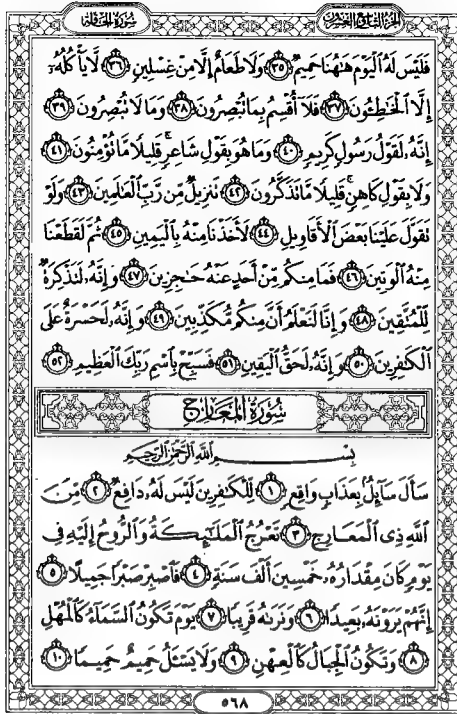 الجزء التاسع والعشرون
سورة الحاقة
فَلَيْسَ لَهُ الْيَوْمَ هَاهُنَا حَمِيمٌ ٣٥ وَلَا طَعَامٌ إِلَّا مِنْ غِسْلِينٍ ٣٦ لَّا يَأْكُلُهُ
إِلَّا الْخَاطِئُونَ ٣٧ فَلَا أُقْسِمُ بِمَا تُبْصِرُونَ ٣٨ وَمَا لَا تُبْصِرُونَ ٣٩
إِنَّهُ لَقَوْلُ رَسُولٍ كَرِيمٍ ٤٠ وَمَا هُوَ بِقَوْلِ شَاعِرٍ ۚ قَلِيلًا مَّا تُؤْمِنُونَ ٤١
وَلَا بِقَوْلِ كَاهِنٍ ۚ قَلِيلًا مَّا تَذَكَّرُونَ ٤٢ تَنزِيلٌ مِّن رَّبِّ الْعَالَمِينَ ٤٣ وَلَوْ
تَقَوَّلَ عَلَيْنَا بَعْضَ الْأَقَاوِيلِ ٤٤ لَأَخَذْنَا مِنْهُ بِالْيَمِينِ ٤٥ ثُمَّ لَقَطَعْنَا
مِنْهُ الْوَتِينَ ٤٦ فَمَا مِنكُم مِّنْ أَحَدٍ عَنْهُ حَاجِزِينَ ٤٧ وَإِنَّهُ لَتَذْكِرَةٌ
لِّلْمُتَّقِينَ ٤٨ وَإِنَّا لَنَعْلَمُ أَنَّ مِنكُم مُّكَذِّبِينَ ٤٩ وَإِنَّهُ لَحَسْرَةٌ عَلَى
الْكَافِرِينَ ٥٠ وَإِنَّهُ لَحَقُّ الْيَقِينِ ٥١ فَسَبِّحْ بِاسْمِ رَبِّكَ الْعَظِيمِ ٥٢
سُورَةُ الْمَعَارِجِ
بِسْمِ اللَّهِ الرَّحْمَٰنِ الرَّحِيمِ
سَأَلَ سَائِلٌ بِعَذَابٍ وَاقِعٍ ١ لِّلْكَافِرِينَ لَيْسَ لَهُ دَافِعٌ ٢ مِّنَ
اللَّهِ ذِي الْمَعَارِجِ ٣ تَعْرُجُ الْمَلَائِكَةُ وَالرُّوحُ إِلَيْهِ فِي
يَوْمٍ كَانَ مِقْدَارُهُ خَمْسِينَ أَلْفَ سَنَةٍ ٤ فَاصْبِرْ صَبْرًا جَمِيلًا ٥
إِنَّهُمْ يَرَوْنَهُ بَعِيدًا ٦ وَنَرَاهُ قَرِيبًا ٧ يَوْمَ تَكُونُ السَّمَاءُ كَالْمُهْلِ
٨ وَتَكُونُ الْجِبَالُ كَالْعِهْنِ ٩ وَلَا يَسْأَلُ حَمِيمٌ حَمِيمًا ١٠
٥٦٨